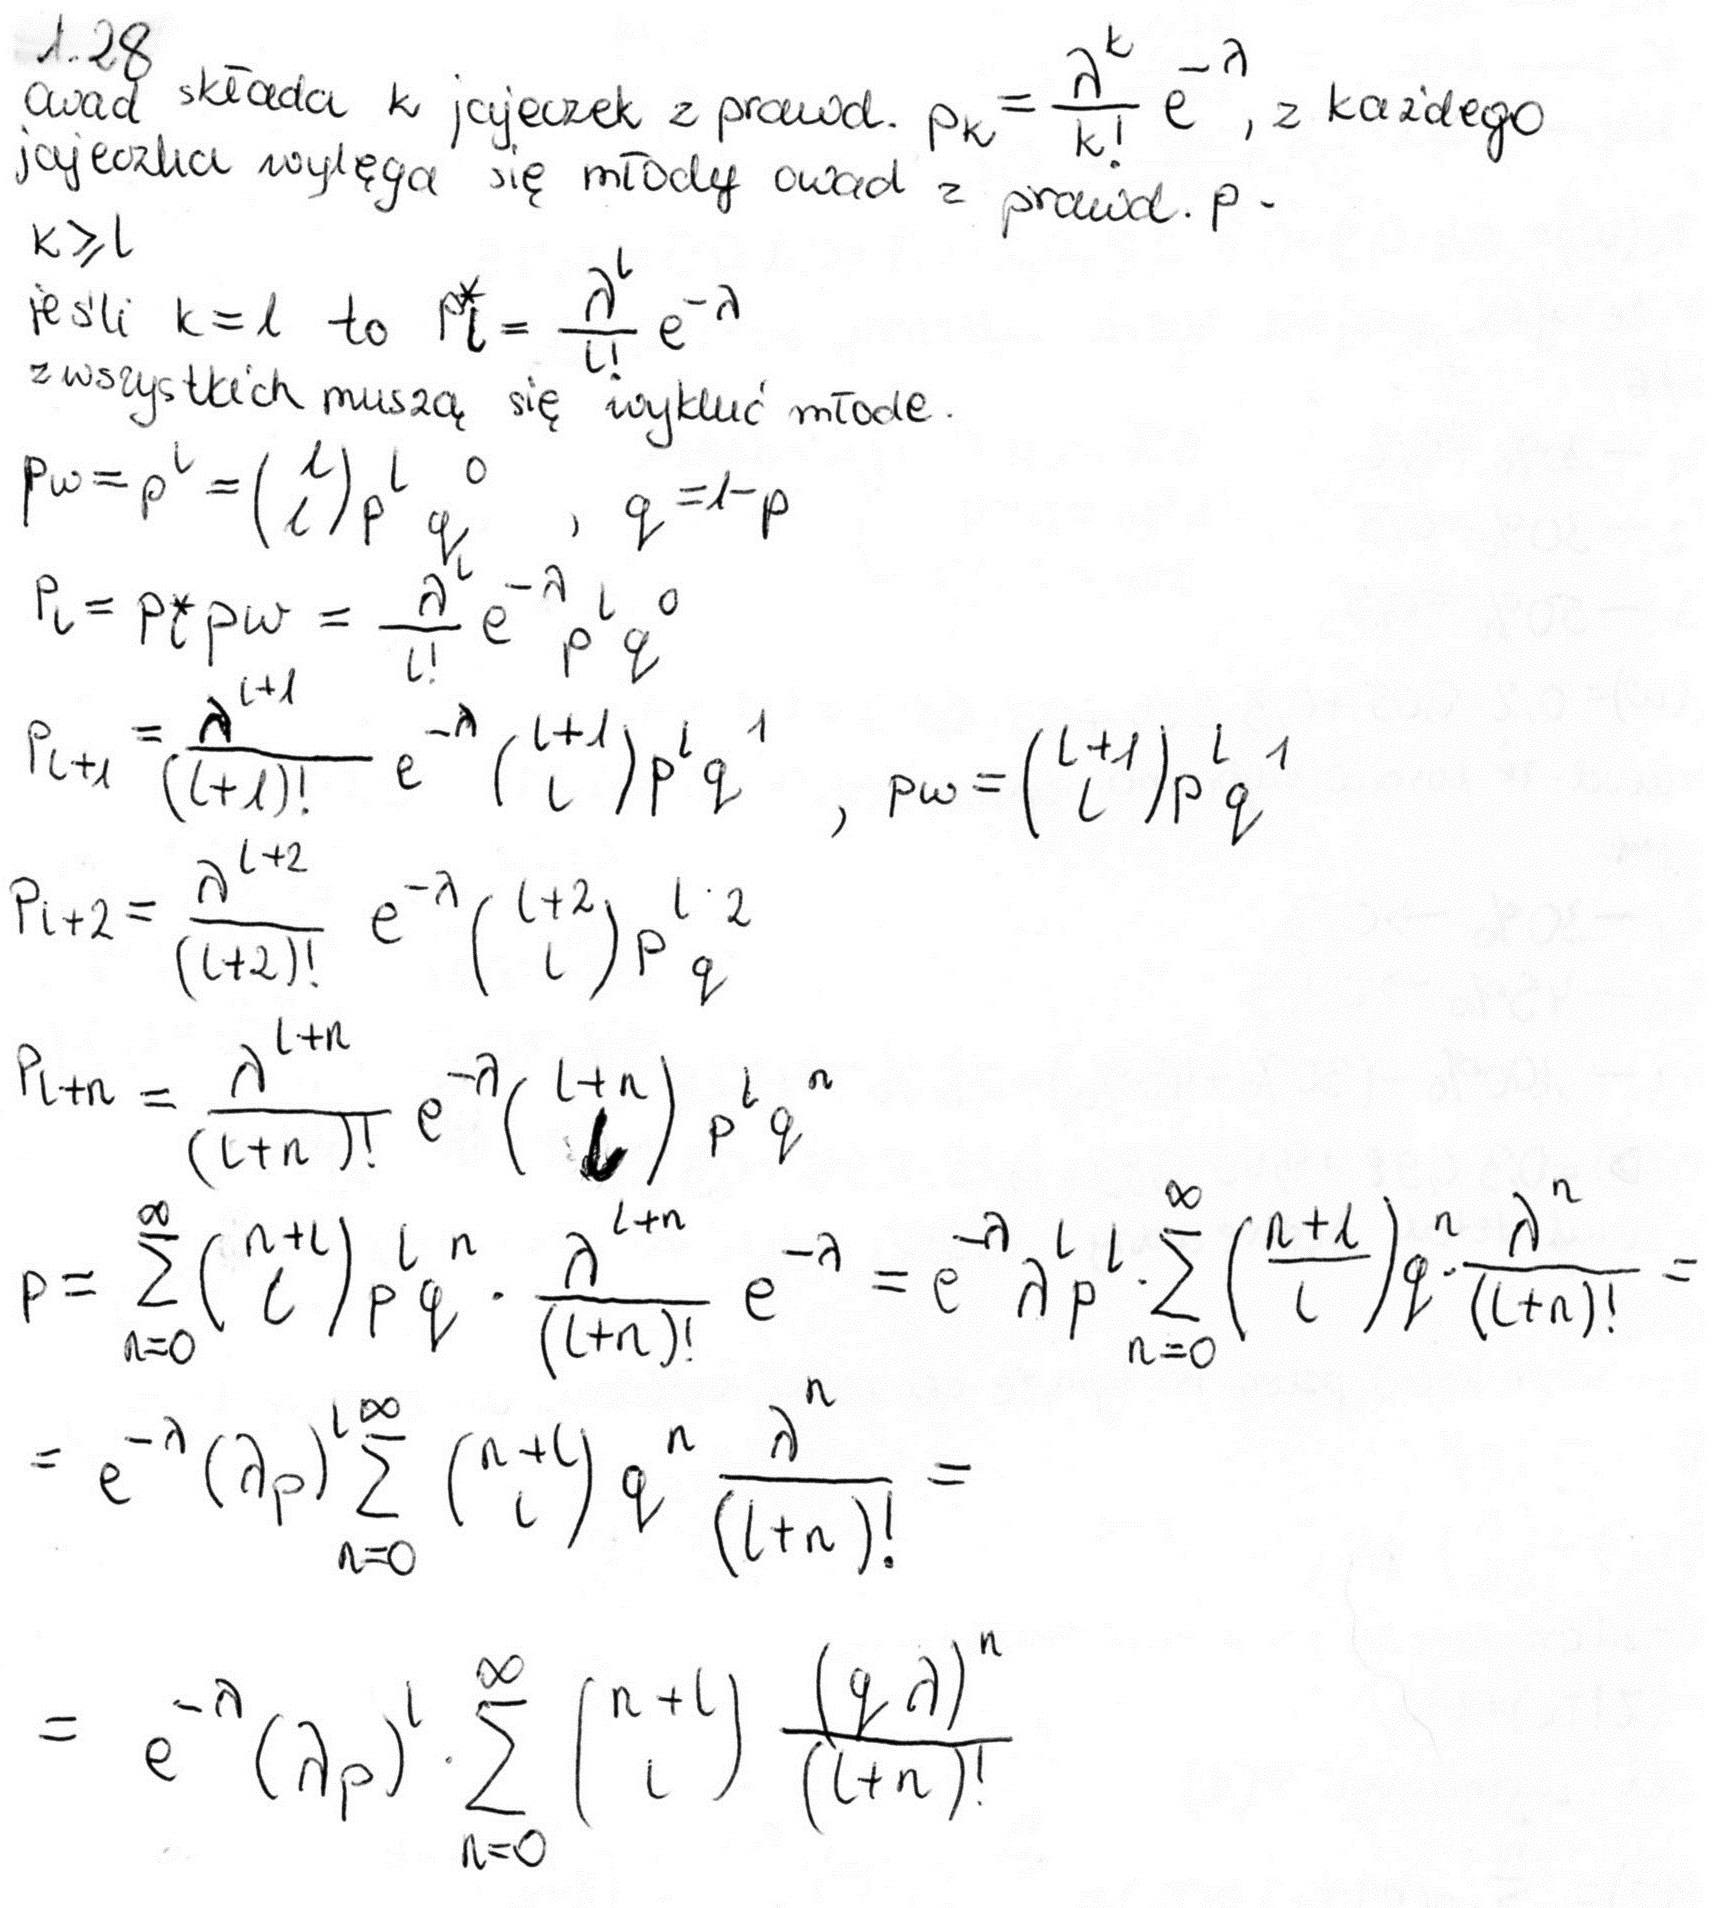 1.28
owad składa k jajeczek z prawd. p_k = λ^k/k! e^{-λ}, z każdego
jajeczka wylęga się młody owad z prawd. p.
k ⩾ l
jeśli k = l to p*_l = λ^l/l! e^{-λ}
z wszystkich muszą się wykluć młode.
pw = p^l = (l l) p^l q^0 , q = 1-p
P_l = p*_l pw = λ^l/l! e^{-λ} p^l q^0
P_{l+1} = λ^{l+1}/(l+1)! e^{-λ} (l+1 l) p^l q^1 , pw = (l+1 l) p^l q^1
P_{l+2} = λ^{l+2}/(l+2)! e^{-λ} (l+2 l) p^l q^2
P_{l+n} = λ^{l+n}/(l+n)! e^{-λ} (l+n l) p^l q^n
p = ∑_{n=0}^{∞} (n+l l) p^l q^n · λ^{l+n}/(l+n)! e^{-λ} = e^{-λ} λ^l p^l · ∑_{n=0}^{∞} (n+l l) q^n · λ^n/(l+n)! =
= e^{-λ} (λp)^l ∑_{n=0}^{∞} (n+l l) q^n λ^n/(l+n)! =
= e^{-λ} (λp)^l · ∑_{n=0}^{∞} (n+l l) (qλ)^n/(l+n)!